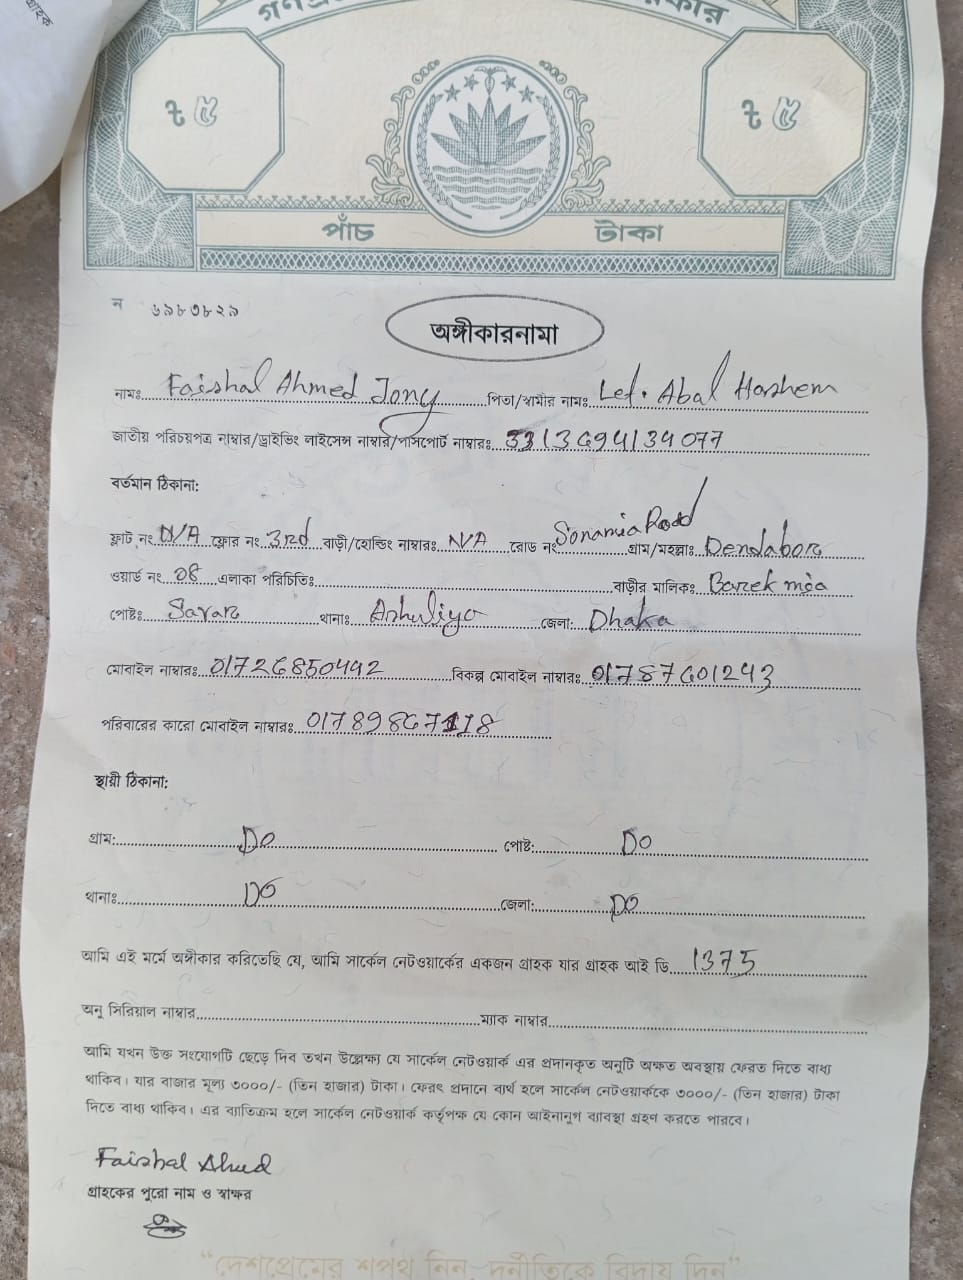 গ্রাহক
৳ ৫ ৳ ৫
পাঁচ টাকা
ন ৬৯৮৩৮২৯
অঙ্গীকারনামা
নামঃ Faishal Ahmed Jony পিতা/স্বামীর নামঃ Let. Abal Hashem
জাতীয় পরিচয়পত্র নাম্বার/ড্রাইভিং লাইসেন্স নাম্বার/পাসপোর্ট নাম্বারঃ 3313694134077
বর্তমান ঠিকানা:
ফ্লাট নং N/A ফ্লোর নং 3rd বাড়ী/হোল্ডিং নাম্বারঃ N/A রোড নং Sonamia Road গ্রাম/মহল্লাঃ Dendabor
ওয়ার্ড নং 08 এলাকা পরিচিতিঃ বাড়ীর মালিকঃ Barek mia
পোষ্টঃ Savar থানাঃ Ashuliya জেলা: Dhaka
মোবাইল নাম্বারঃ 01726850442 বিকল্প মোবাইল নাম্বারঃ 01787601243
পরিবারের কারো মোবাইল নাম্বারঃ 01789867118
স্থায়ী ঠিকানা:
গ্রাম: DO পোষ্ট: DO
থানাঃ DO জেলা: DO
আমি এই মর্মে অঙ্গীকার করিতেছি যে, আমি সার্কেল নেটওয়ার্কের একজন গ্রাহক যার গ্রাহক আই ডি 1375
অনু সিরিয়াল নাম্বার ম্যাক নাম্বার
আমি যখন উক্ত সংযোগটি ছেড়ে দিব তখন উল্লেক্ষ্য যে সার্কেল নেটওয়ার্ক এর প্রদানকৃত অনুটি অক্ষত অবস্থায় ফেরত দিতে বাধ্য
থাকিব। যার বাজার মূল্য ৩০০০/- (তিন হাজার) টাকা। ফেরৎ প্রদানে ব্যর্থ হলে সার্কেল নেটওয়ার্ককে ৩০০০/- (তিন হাজার) টাকা
দিতে বাধ্য থাকিব। এর ব্যতিক্রম হলে সার্কেল নেটওয়ার্ক কর্তৃপক্ষ যে কোন আইনানুগ ব্যাবস্থা গ্রহণ করতে পারবে।
Faishal Ahmed
গ্রাহকের পুরো নাম ও স্বাক্ষর
"দেশপ্রেমের শপথ নিন, দুর্নীতিকে বিদায় দিন"